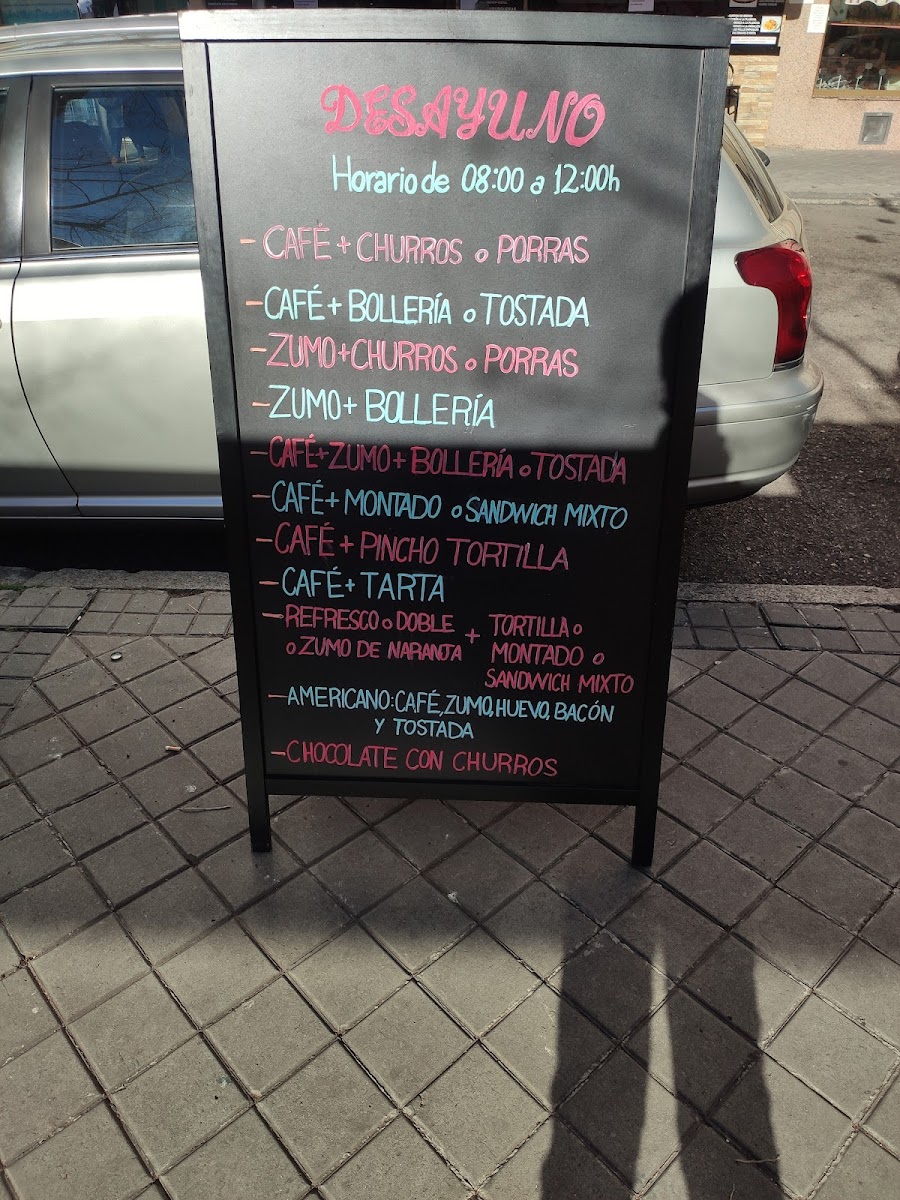 DESAYUNO
Horario de 08:00 a 12:00h
- CAFÉ + CHURROS o PORRAS
- CAFÉ + BOLLERÍA o TOSTADA
- ZUMO + CHURROS o PORRAS
- ZUMO + BOLLERÍA
- CAFÉ + ZUMO + BOLLERÍA o TOSTADA
- CAFÉ + MONTADO o SANDWICH MIXTO
- CAFÉ + PINCHO TORTILLA
- CAFÉ + TARTA
- REFRESCO o DOBLE
o ZUMO DE NARANJA
+
TORTILLA o
MONTADO o
SANDWICH MIXTO
- AMERICANO: CAFÉ, ZUMO, HUEVO, BACÓN
Y TOSTADA
- CHOCOLATE CON CHURROS